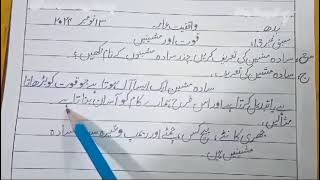 بدھ واقفیت عامہ ۱۳ نومبر ۲۰۲۳
سبق نمبر ۱۹ قوت اور مشینیں
س: سادہ مشین کی تعریف کریں چند سادہ مشینوں کے نام لکھیں؟
ج: سادہ مشین کی تعریف:
سادہ مشین ایک ایسا آلہ ہوتا ہے جو قوت کو بڑھاتا
ہے یا تبدیل کرتا ہے اور اس طرح ہمارے کام کو آسان بناتا ہے
مثالیں:
چھری کانٹے، پیچ کس، چمٹے اور ریمپ وغیرہ سب سادہ
مشینیں ہیں۔